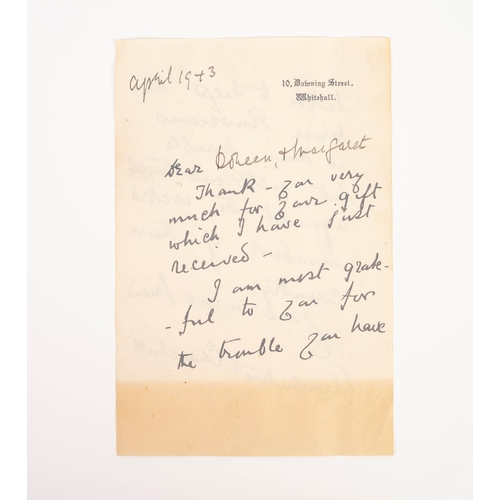 April 1943
10, Downing Street,
Whitehall.
Dear Doreen, & Margaret
Thank - you very
much for your gift
which I have just
received -
I am most grate-
-ful to you for
the trouble you have